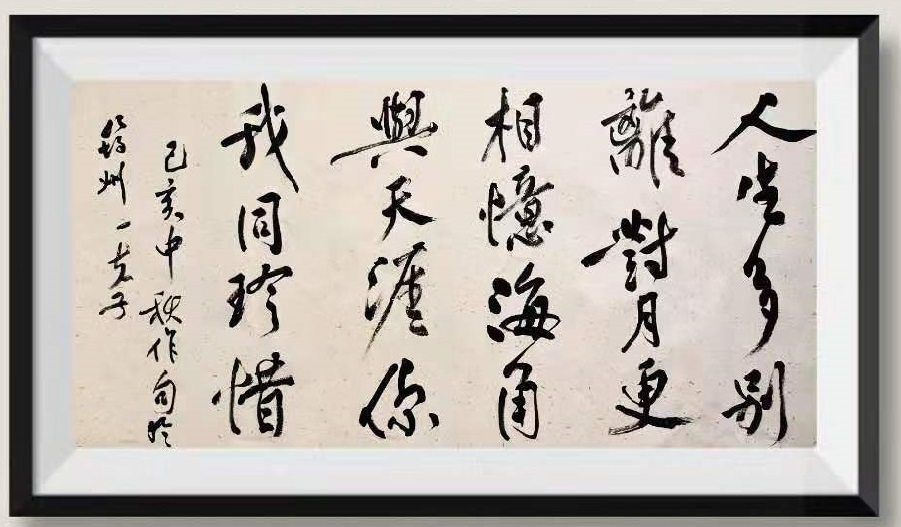 人生多别
離對月更
相憶海角
與天涯你
我同珍惜
己亥中秋作句於
州一子